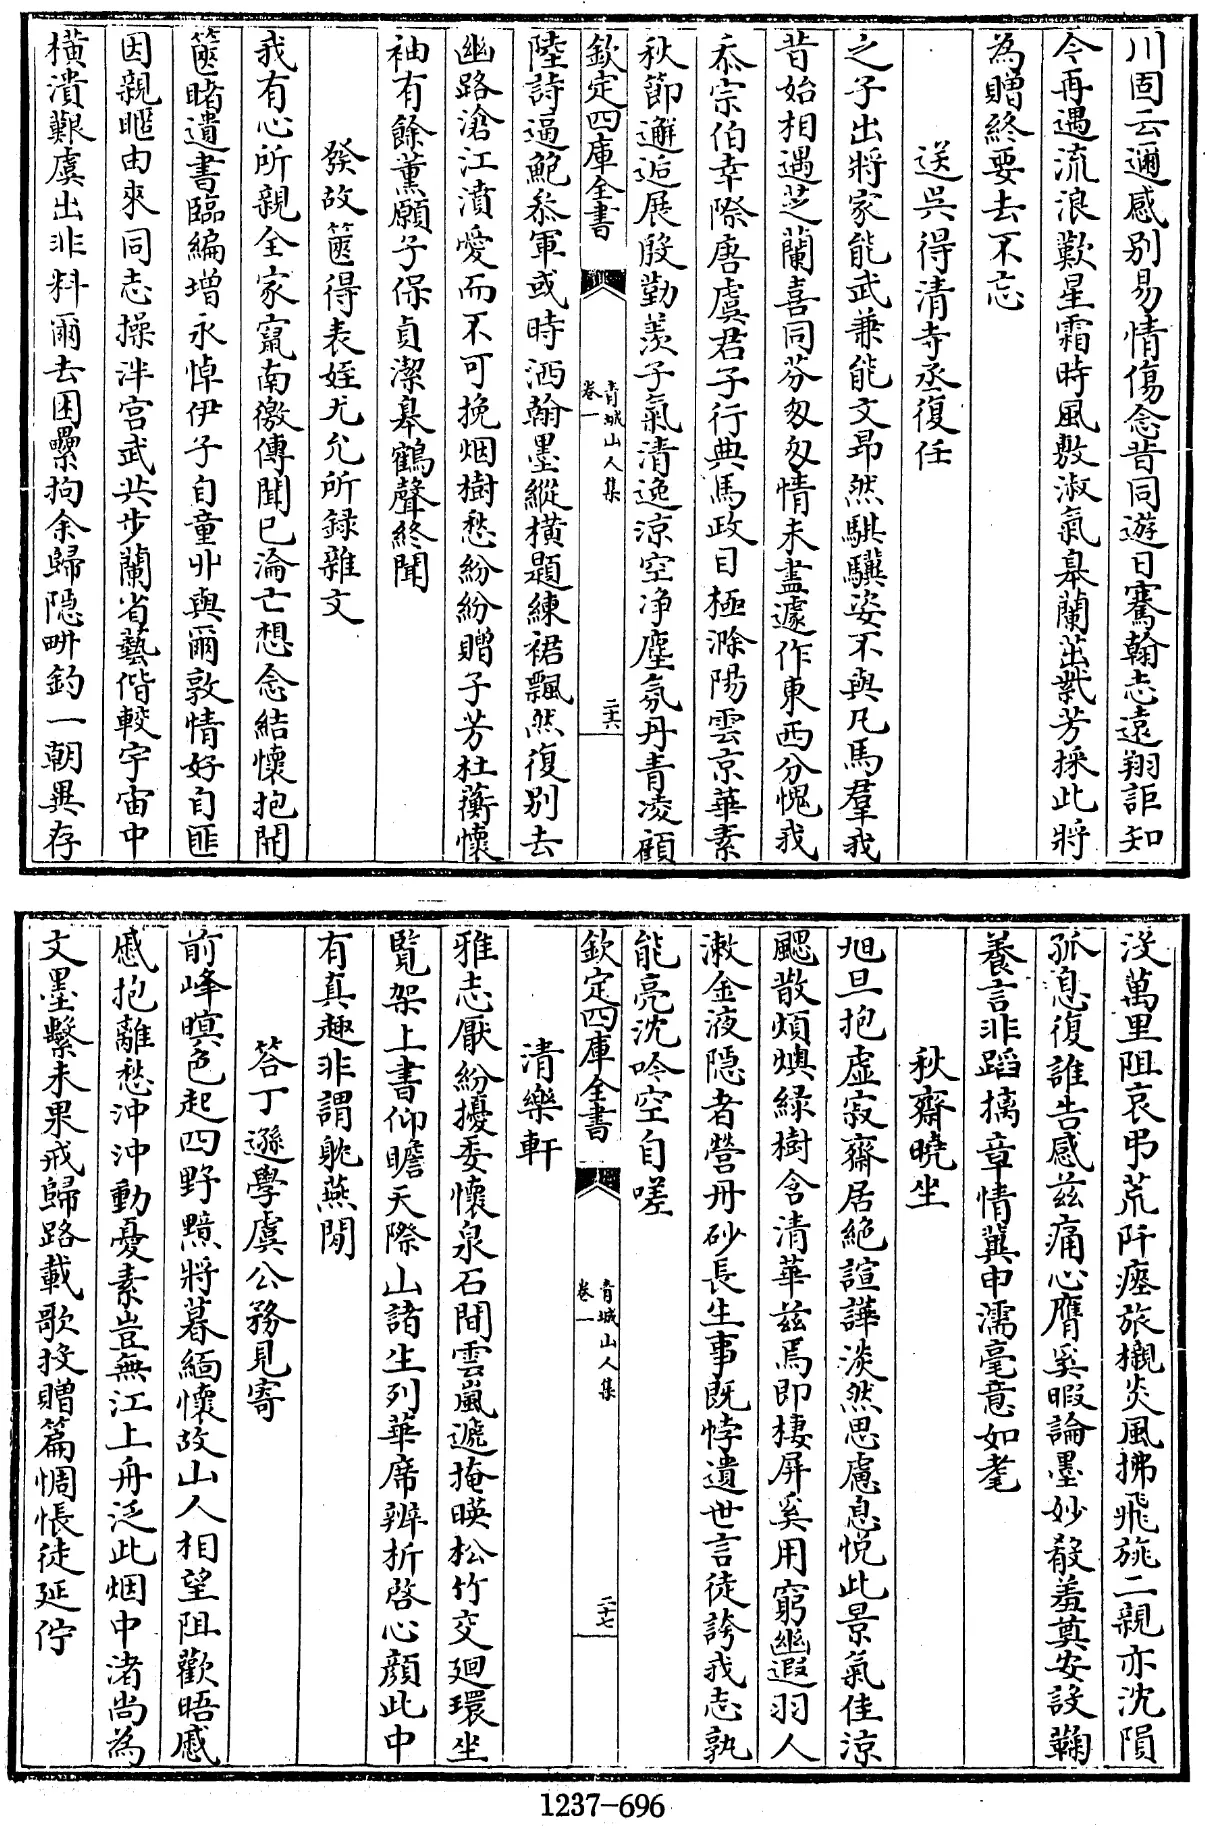 川固云邇感别易情傷念昔同遊日騫翰志遠翔詎知
今再遇流浪歎星霜時風敷淑氣皋蘭茁紫芳採此將
為贈終要去不忘
送吳得清寺丞復任
之子出將家能武兼能文昂然騏驥姿不與凡馬羣我
昔始相遇芝蘭喜同芬匆匆情未盡遽作東西分愧我
忝宗伯幸際唐虞君子行典馬政目極滁陽雲京華素
秋節邂逅展殷勤羨子氣清逸凉空净塵氛丹青凌顧
欽定四庫全書
青城山人集
卷一
二十六
陸詩逼鮑叅軍或時洒翰墨縱横題練裙飄然復别去
幽路滄江濆愛而不可挽烟樹愁紛紛贈子芳杜蘅懷
袖有餘薰願子保貞潔皋鶴聲終聞
發故篋得表姪尤允所録雜文
我有心所親全家竄南徼傳聞已淪亡想念結懷抱開
篋睹遺書臨編增永悼伊子自童丱與爾敦情好自匪
因親暱由來同志操泮宫武共步蘭省藝偕較宇宙中
横潰艱虞出非料爾去困纍拘余歸隠畊釣一朝異存
没萬里阻哀弔荒阡瘞旅櫬炎風拂飛旐二親亦沈隕
孤息復誰告感兹痛心膺奚暇論墨妙殽羞奠安設鞠
養言非蹈摛章情冀申濡毫意如耄
秋齋曉坐
旭旦抱虚寂齋居絶諠譁淡然思慮息悦此景氣佳凉
颸散煩燠緑樹含清華兹焉即棲屏奚用窮幽遐羽人
漱金液隠者營丹砂長生事既悖遺世言徒誇我志孰
能亮沈吟空自嗟
欽定四庫全書
青城山人集
卷一
二十七
清樂軒
雅志厭紛擾委懷泉石間雲嵐遞掩暎松竹交廻環坐
覧架上書仰瞻天際山諸生列華席辨析啓心顔此中
有真趣非謂躭燕閒
荅丁遜學虞公務見寄
前峰暝色起四野黯將暮緬懷故山人相望阻歡晤戚
戚抱離愁沖沖動憂素豈無江上舟泛此烟中渚尚為
文墨繫未果戒歸路載歌投贈篇惆悵徒延佇
1237-696